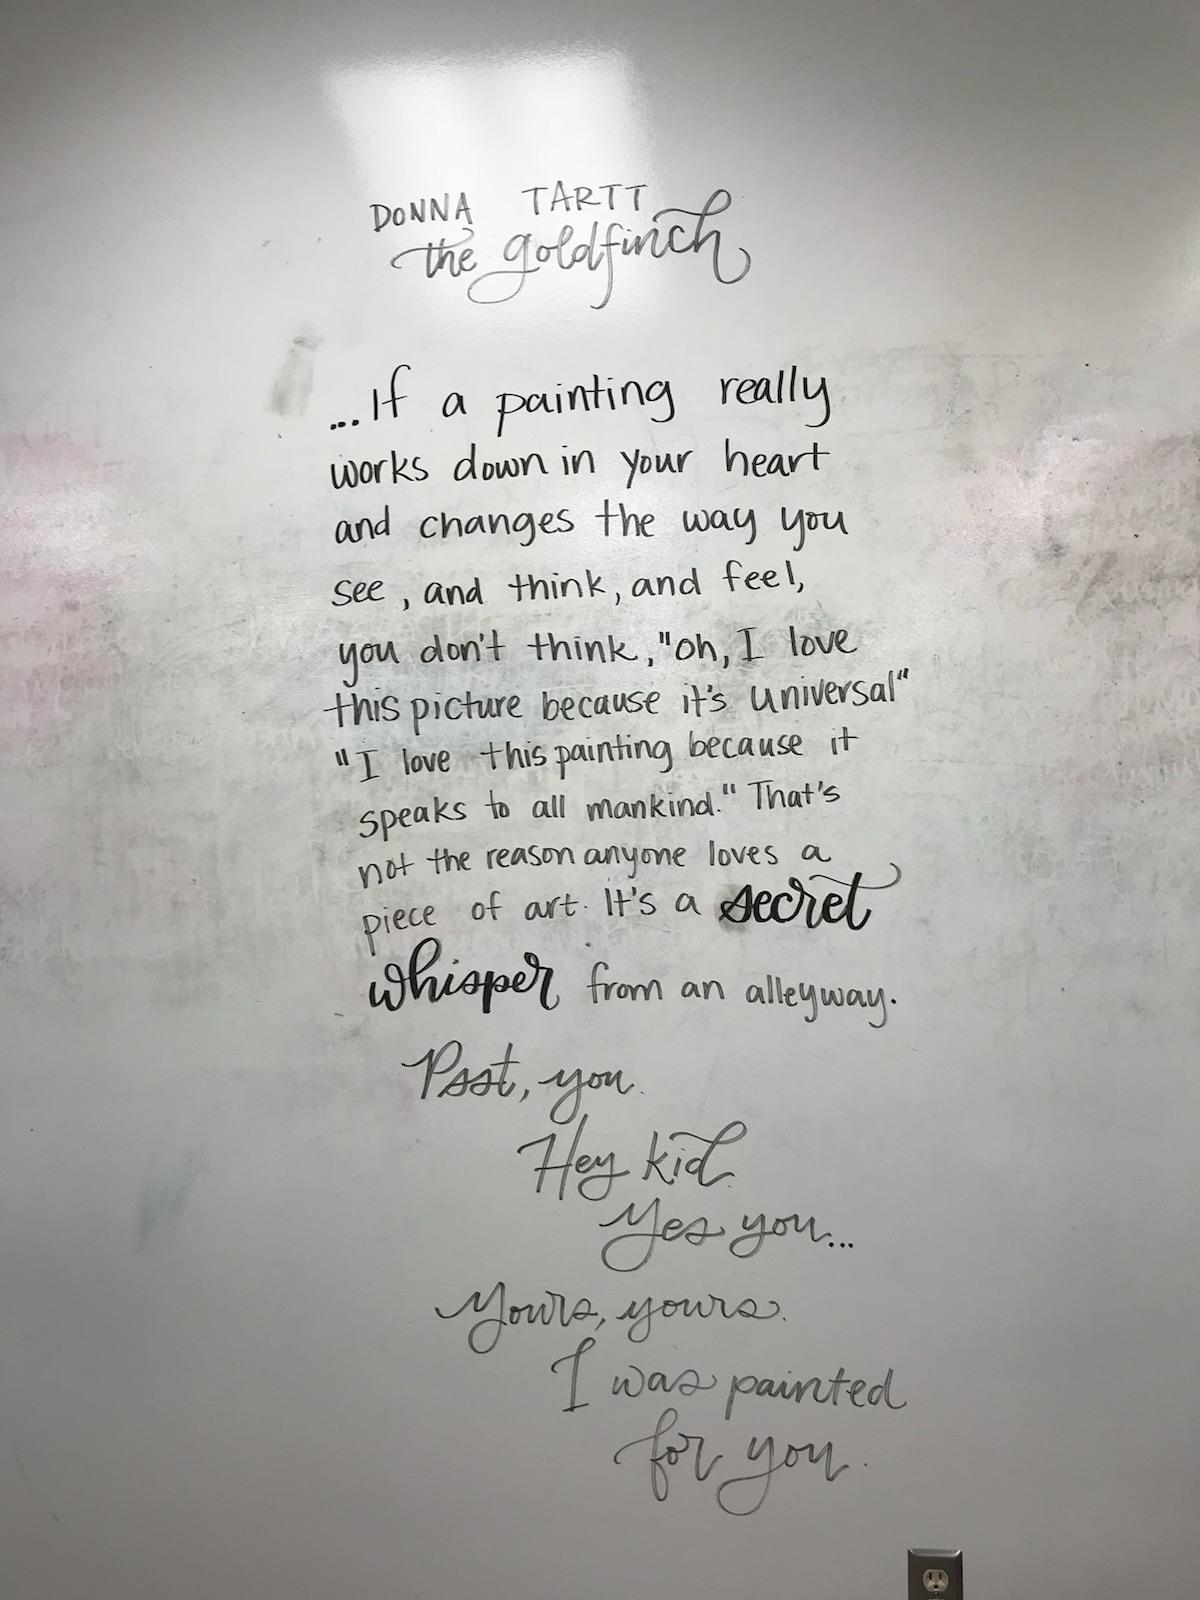 DONNA TARTT
the goldfinch
...If a painting really
works down in your heart
and changes the way you
see, and think, and feel,
you don't think, "oh, I love
this picture because it's universal"
"I love this painting because it
speaks to all mankind." That's
not the reason anyone loves a
piece of art. It's a secret
whisper from an alleyway.
Psst, you.
Hey kid.
Yes you...
Yours, yours.
I was painted
for you.